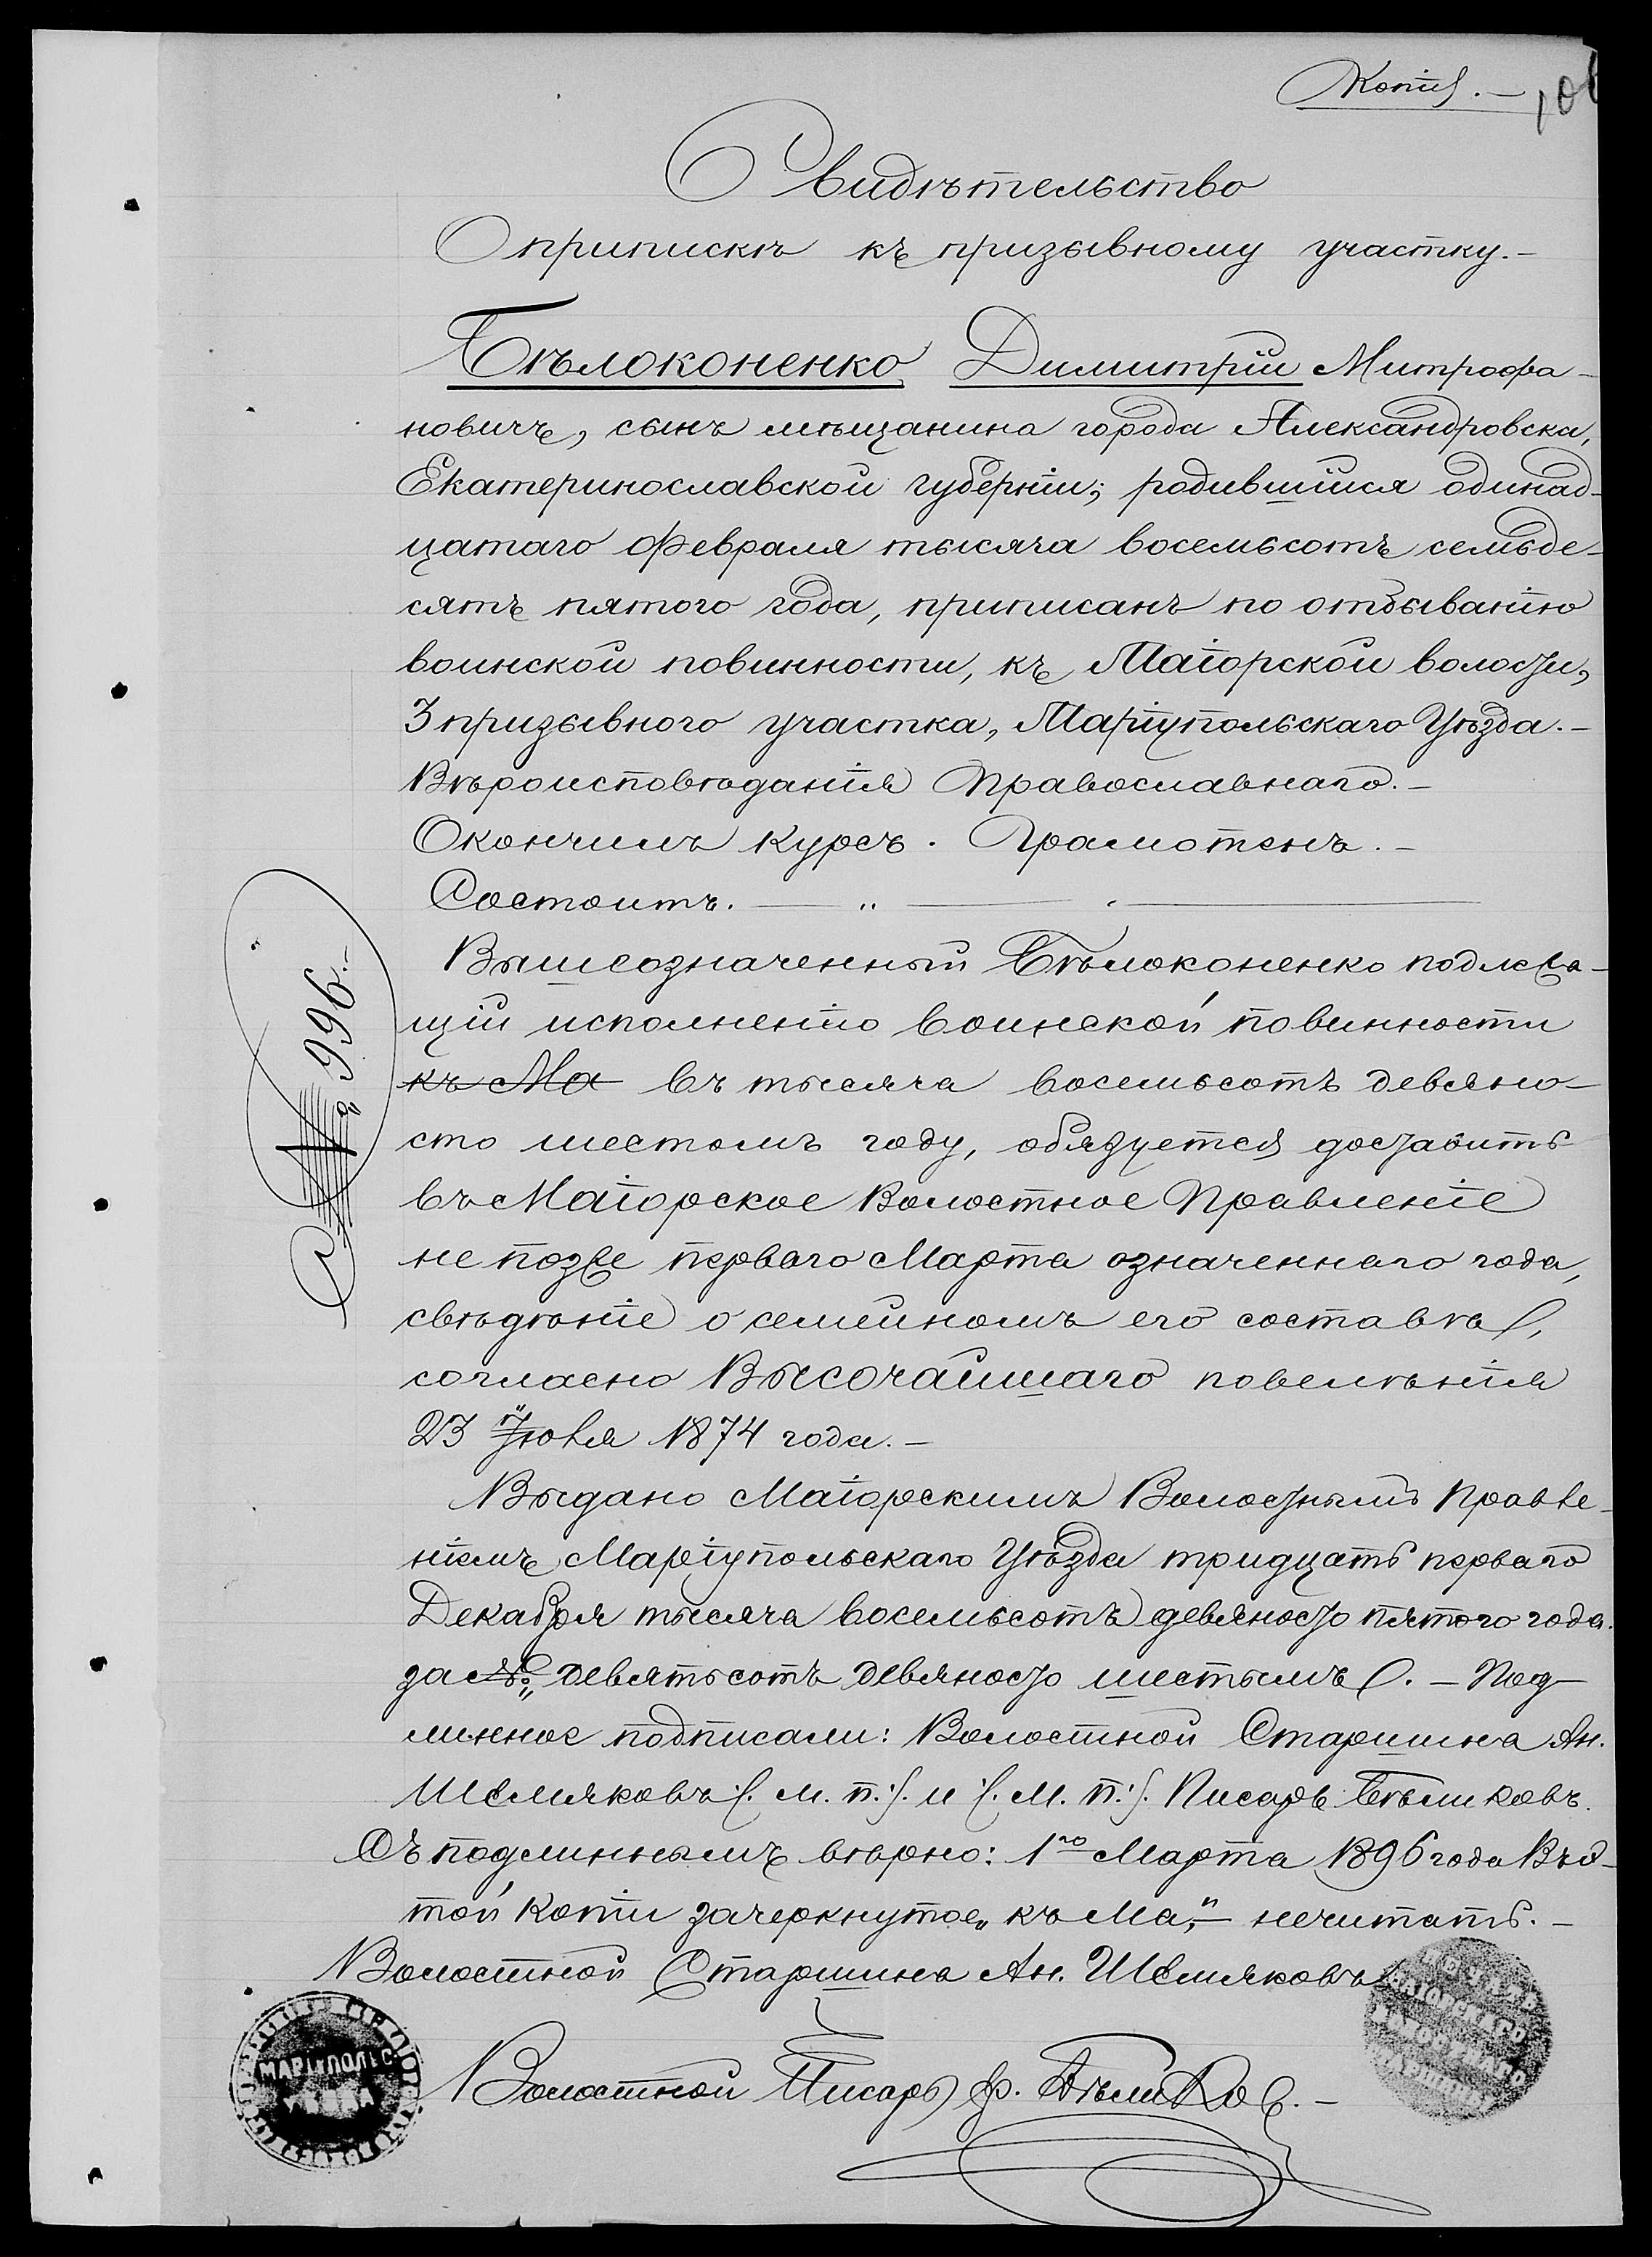 Копія. —
Свидѣтельство
О припискѣ къ призывному участку. —
Бѣлоконенко Димитрій Митрофа-
новичъ, сынъ мѣщанина города Александровска,
Екатеринославской губерніи; родившійся одинад-
цатаго Февраля тысяча восемьсотъ семьде-
сятъ пятого года, приписанъ по отбыванію
воинской повинности, къ Маіорской волости,
3 призывного участка, Маріупольскаго Уѣзда. —
Вѣроисповѣданія Православнаго. —
Окончилъ курсъ. Грамотенъ. —
Состоитъ. — „ —
Вышеозначенный Бѣлоконенко подлежа-
щій исполненію воинской повинности
къ Ма въ тысяча восемьсотъ девяно-
сто шестомъ году, обязуется доставить
въ Маіорское Волостное Правленіе
не позже перваго Марта означеннаго года,
свѣдѣніе о семейномъ его составѣ,
согласно Высочайшаго повелѣнія
23 Іюня 1874 года. —
Выдано Маіорскимъ Волостнымъ Правле-
ніемъ Маріупольскаго Уѣзда тридцать перваго
Декабря тысяча восемьсотъ девяносто пятого года.
за № девятьсотъ девяносто шестымъ. — Под-
линное подписали: Волостной Старшина Ан.
Шемяковъ (. м. п.). и (. М. п.). Писарь Бѣликовъ.
Съ подлиннымъ вѣрно: 1го Марта 1896 года Въ э-
той копіи зачеркнутое „къ Ма“, — нечитать. —
Волостной Старшина Ан. Шемяковъ
Волостной Писарь Ф. Бѣликов. —
№ 996. —
МАРІУПОЛЬС
УѢЗДА